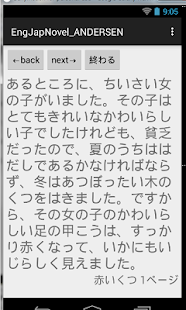 9:05
EngJapNovel_ANDERSEN
←back
next→
終わる
あるところに、ちいさい女
の子がいました。その子はと
てもきれいなかわいらし
い子でしたけれども、貧乏
だったので、夏のうちはは
だしであるかなければなら
ず、冬はあつぼったい木の
くつをはきました。ですか
ら、その女の子のかわいら
しい足の甲こうは、すっか
り赤くなって、いかにもい
じらしく見えました。
赤いくつ 1ページ